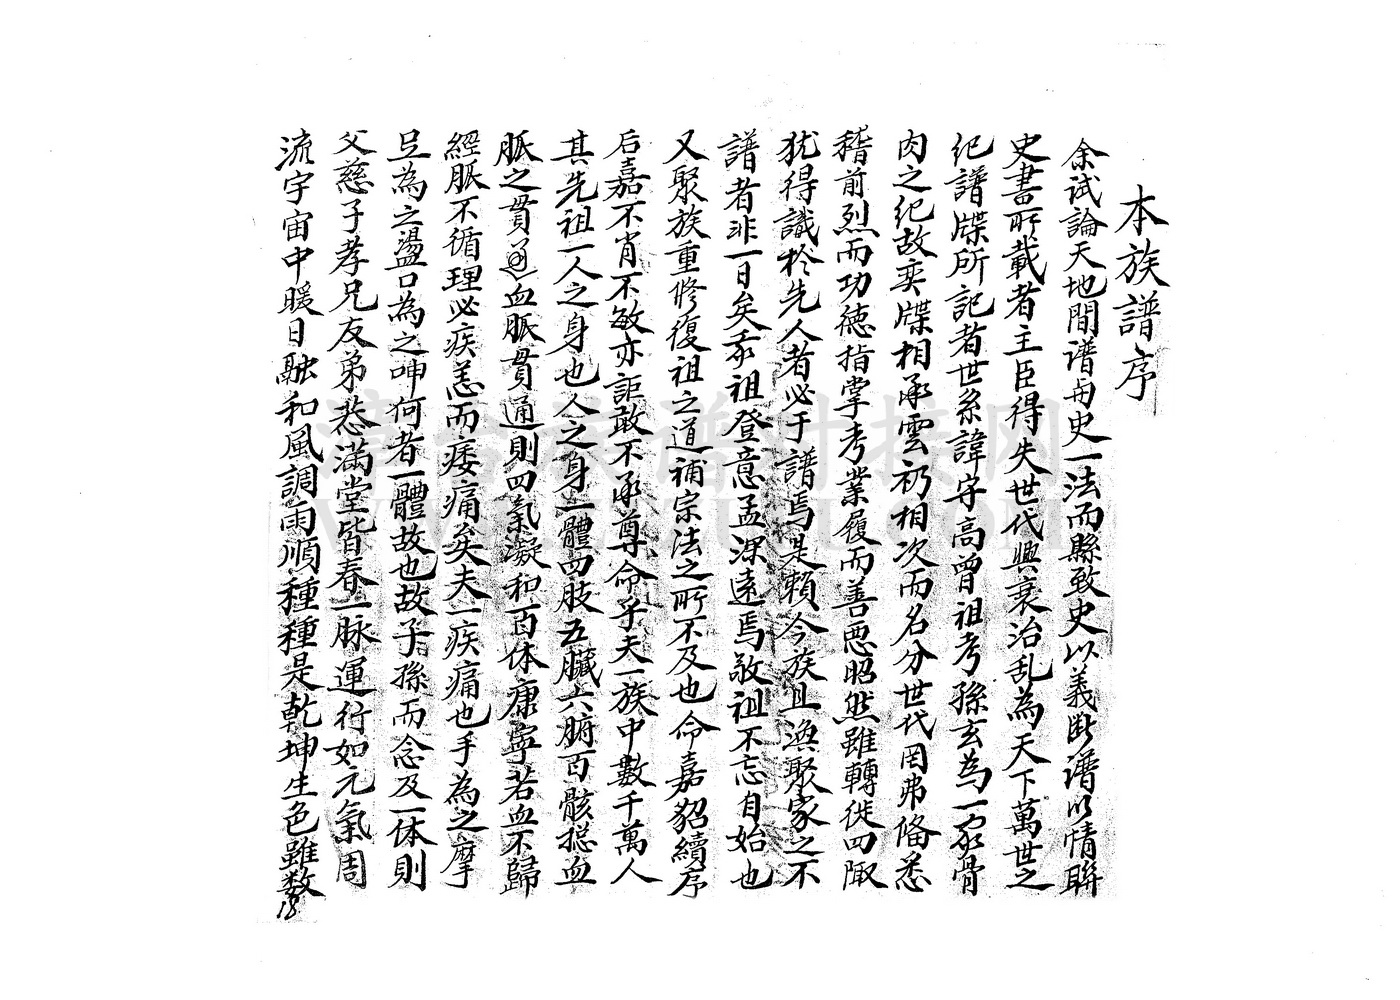 本族譜序
余試論天地間谱與史一法而縣致史以義断谱以情聯
史書所載者主臣得失世代興衰治乱為天下萬世之
纪譜牒所記者世系諱字高曾祖考孫玄為一家骨
肉之纪故奕牒相承雲礽相次而名分世代罔弗俻悉
稽前烈而功德指掌考業履而善恶昭然雖轉徙四陬
犹得識於先人者必于譜焉是賴今族且涣聚家之不
譜者非一日矣我祖登意孟深遠焉敬祖不忘自始也
又聚族重修復祖之道補宗法之所不及也命嘉貂續序
后嘉不肖不敏亦詎敢不承尊命乎夫一族中數千萬人
其先祖一人之身也人之身一體四肢五臟六腑百骸揔血
脈之貫通血脈貫通則四氣凝和百体康寧若血不歸
經脈不循理必疾恙而痿痛矣夫一疾痛也手為之摩
足為之盪口為之呻何者一體故也故子孫而念及一体則
父慈子孝兄友弟恭满堂皆春一脉運行如元氣周
流宇宙中暖日融和風調雨順種種是乾坤生色雖数
18